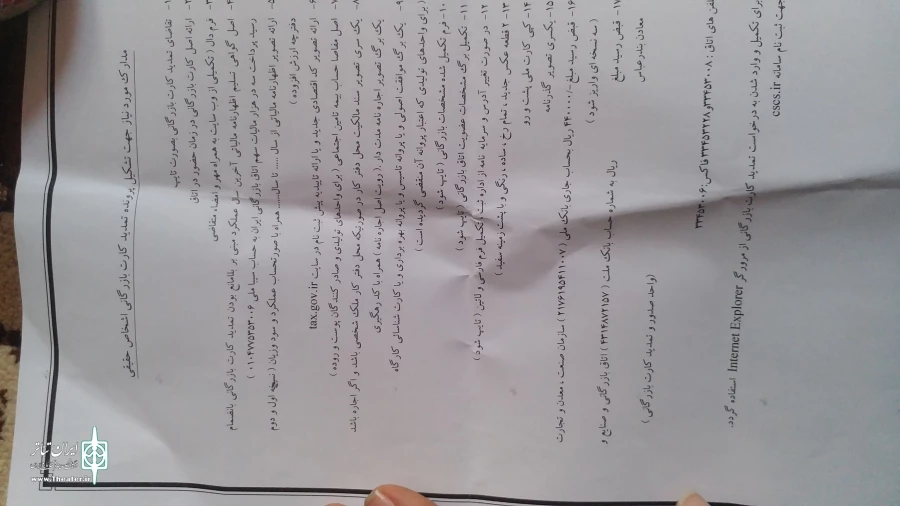 مدارک مورد نیاز جهت تشکیل پرونده تمدید کارت بازرگانی اشخاص حقیقی
۱- تقاضای تمدید کارت بازرگانی بصورت تایپ
۲- ارائه اصل کارت بازرگانی در زمان حضور در اتاق
۳- فرم دال (تکمیلی از وب سایت به همراه مهر و امضاء متقاضی
۴- اصل گواهی تسلیم اظهارنامه مالیاتی آخرین سال عملکرد مبنی بر بلامانع بودن تمدید کارت بازرگانی بانضمام
رسید پرداخت سه در هزار مالیات سهم اتاق بازرگانی ایران به حساب سیبا ملی
۵- ارائه تصویر اظهارنامه مالیاتی از سال ..... تا سال..... همراه با صورتحساب عملکرد و سود وزیان (نسخه اول و دوم
دفترچه ارزش افزوده )
۶- ارائه تصویر کد اقتصادی جدید و یا ارائه تاییدیه پیش ثبت نام در سایت tax.gov.ir
۷- اصل مفاصا حساب بیمه تامین اجتماعی ( برای واحدهای تولیدی و صادر کنندگان پوست و روده )
۸- یک سری تصویر سند مالکیت محل دفتر کار در صورتیکه محل دفتر کار ملک شخصی باشد و اگر اجاره باشد
یک برگ تصویر اجاره نامه مدت دار. ( رویت اصل اجاره نامه ) همراه با کد رهگیری
۹- یک برگ موافقت اصولی و یا پروانه تاسیس و یا پروانه بهره برداری و یا کارت شناسائی کارگاه
( برای واحدهای تولیدی که اعتبار پروانه آن منقضی گردیده است )
۱۰- فرم تکمیل شده مشخصات بازرگانی ( تایپ شود)
۱۱- تکمیل برگ مشخصات عضویت اتاق بازرگانی ( تایپ شود )
۱۲- در صورت تغییر آدرس و سرمایه نامه از اداره ثبت و تکمیل فرم فارسی و لاتین ( تایپ شود )
۱۳- ۲ قطعه عکس جدید ، تمام رخ ، ساده ، رنگی و با پشت زمینه سفید )
کپی کارت ملی پشت و رو
۱۵- یکسری تصویر گذرنامه
۱۶- فیش رسید مبلغ ریال بحساب جاری بانک ملی سازمان صنعت ، معدن و تجارت
( سه نسخه ای واریز شود )
۱۷- فیش رسید مبلغ ریال به شماره حساب بانک ملت اتاق بازرگانی و صنایع و
معادن بندرعباس
(واحد صدور و تمدید کارت بازرگانی )
تلفن های اتاق: فاکس:
برای تکمیل و وارد شدن به درخواست تمدید کارت بازرگانی از مرورگر Internet Explorer استفاده گردد.
جهت ثبت نام سامانه cscs.ir
ایران تئاتر
www.Theater.ir